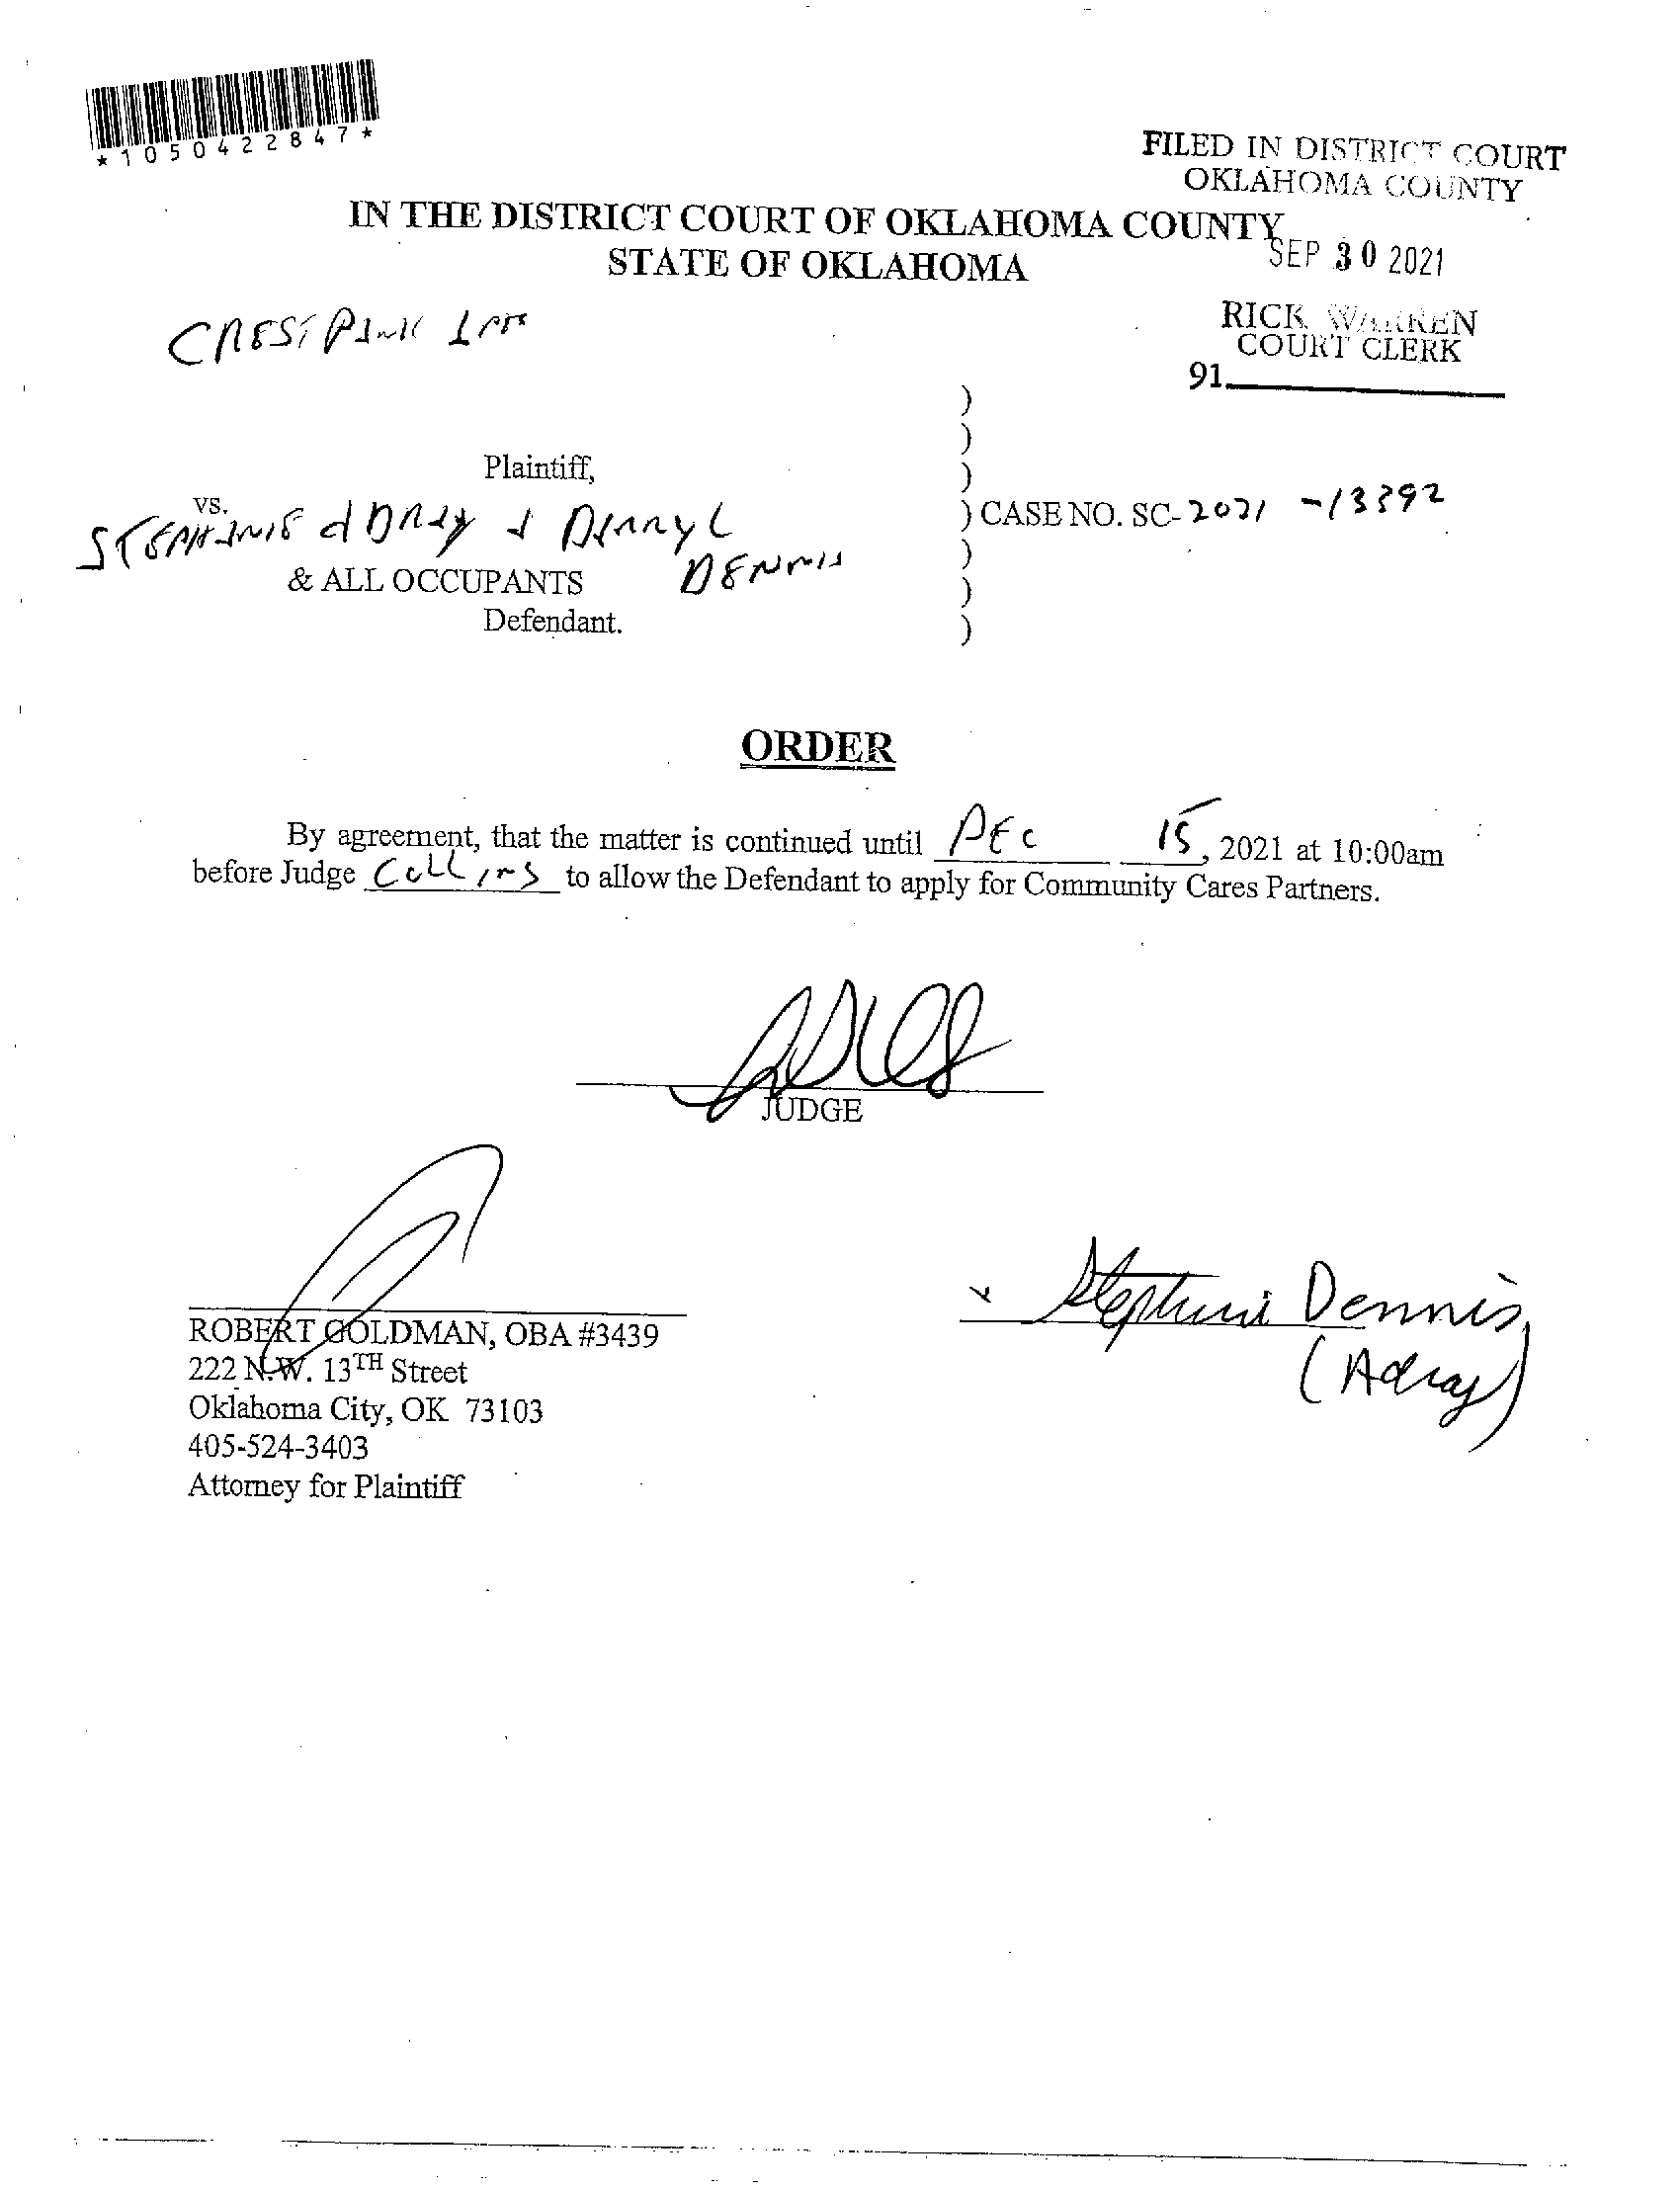 *1050422847*
FILED IN DISTRICT COURT
OKLAHOMA COUNTY
IN THE DISTRICT COURT OF OKLAHOMA COUNTY
STATE OF OKLAHOMA
SEP 30 2021
RICK WARREN
COURT CLERK
91
CRESTPARK
)
)
Plaintiff,
)
vs.
) CASE NO. SC-2021 -13392
STEPHANIE ADRAY & DARRYL
DENNIS
)
& ALL OCCUPANTS
)
Defendant.
)
ORDER
By agreement, that the matter is continued until DEC 15, 2021 at 10:00am
before Judge COLLINS to allow the Defendant to apply for Community Cares Partners.
JUDGE
x Stephanie Dennis
(Adray)
ROBERT GOLDMAN, OBA #3439
222 N.W. 13TH Street
Oklahoma City, OK 73103
405-524-3403
Attorney for Plaintiff